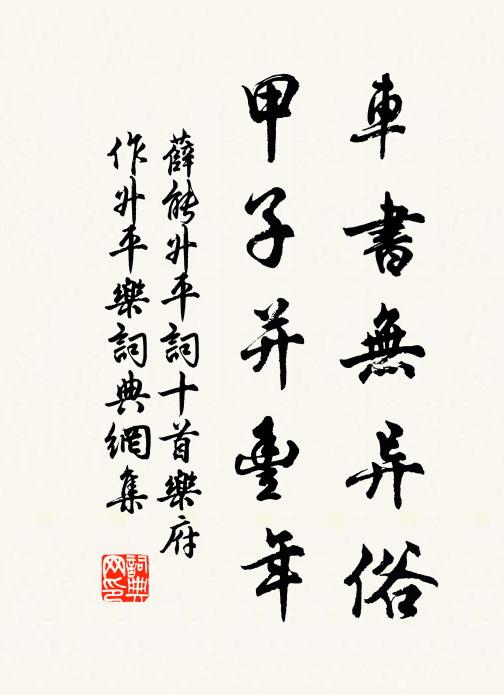 車書無异俗
甲子并豊年
薛能升平詞十首樂府
作升平樂詞典網集
詞典网印